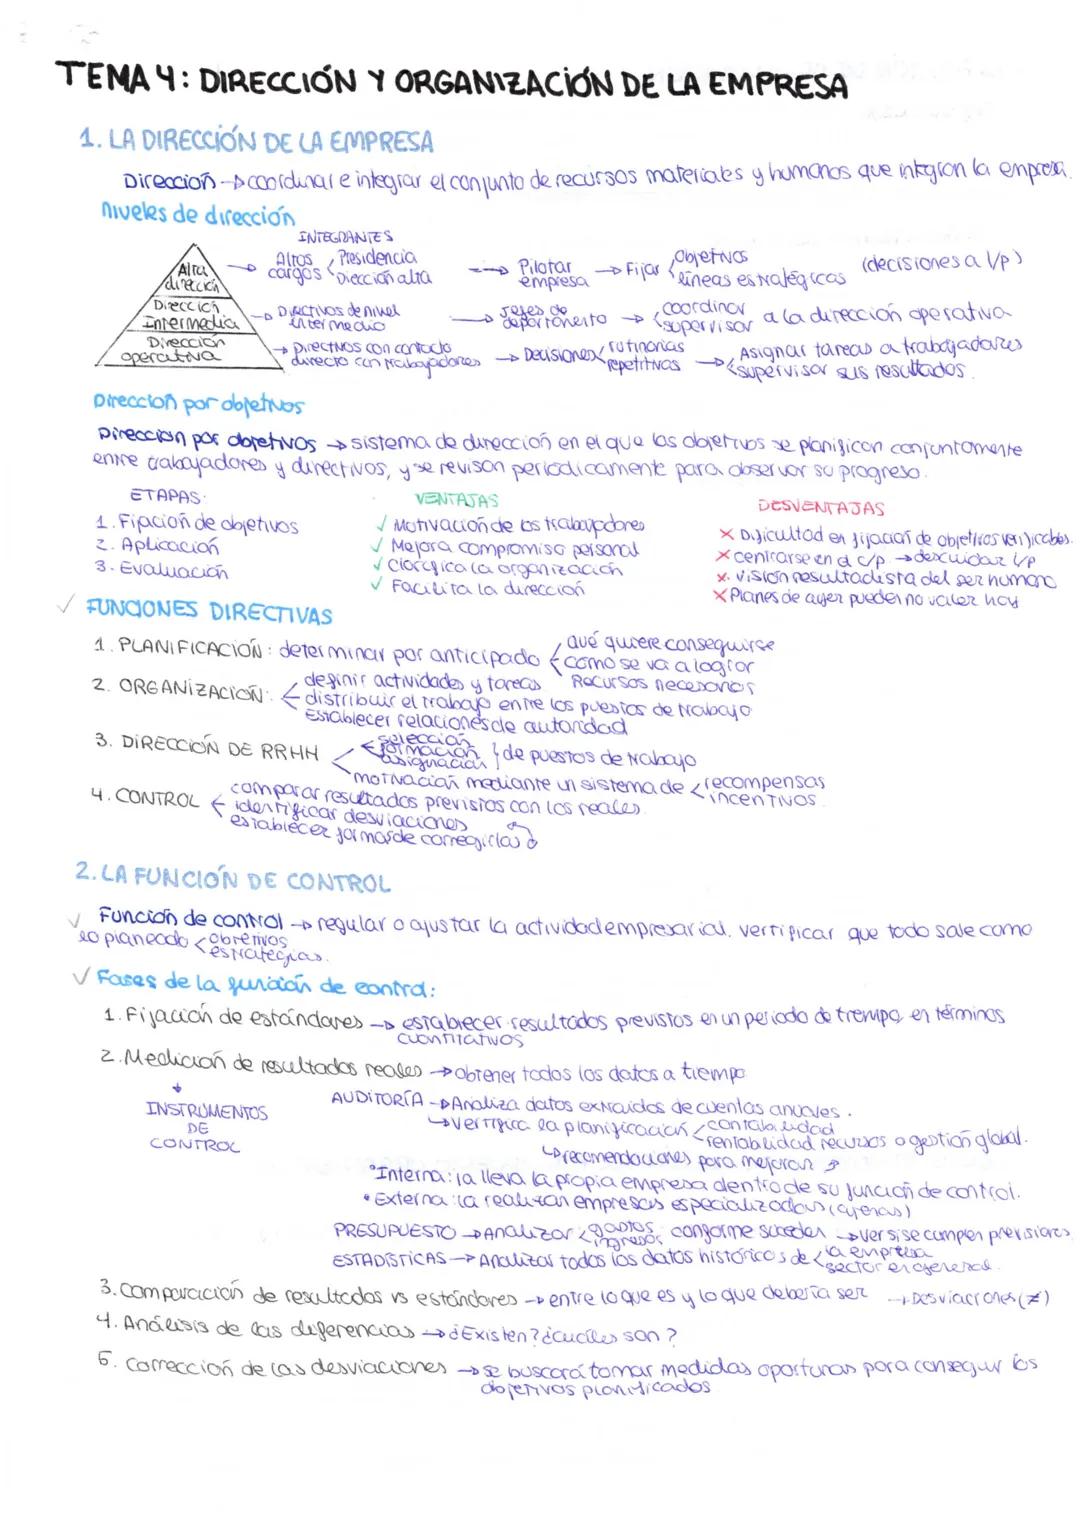 TEMA 4: DIRECCIÓN Y ORGANIZACIÓN DE LA EMPRESA
1. LA DIRECCIÓN DE LA EMPRESA
Dirección → coordinar e integrar el conjunto de recursos materiales y humanos que integran la empresa.
Niveles de dirección
INTEGRANTES
Alta dirección → Altos cargos < Presidencia Dirección alta --→ Pilotar empresa → Fijar < objetivos líneas estratégicas (decisiones a l/p)
Dirección Intermedia → Directivos de nivel intermedio → Jefes de departamento → < coordinar supervisar a la dirección operativa
Dirección operativa → Directivos con contacto directo con trabajadores → Decisiones < rutinarias repetitivas → < Asignar tareas a trabajadores supervisar sus resultados.
Dirección por objetivos
Dirección por objetivos → sistema de dirección en el que los objetivos se planifican conjuntamente
entre trabajadores y directivos, y se revisan periódicamente para observar su progreso.
ETAPAS:
1. Fijación de objetivos
2. Aplicación
3. Evaluación
VENTAJAS
✓ Motivación de los trabajadores
✓ Mejora compromiso personal
✓ Clarifica la organización
✓ Facilita la dirección
DESVENTAJAS
✗ Dificultad en fijación de objetivos verificables.
✗ centrarse en el c/p → descuidar l/p
✗ visión resultadista del ser humano
✗ Planes de ayer pueden no valer hoy
✓ FUNCIONES DIRECTIVAS
1. PLANIFICACIÓN: determinar por anticipado < qué quiere conseguirse
como se va a lograr
Recursos necesarios
2. ORGANIZACIÓN: < definir actividades y tareas
distribuir el trabajo entre los puestos de trabajo
Establecer relaciones de autoridad
3. DIRECCIÓN DE RRHH < selección
formación
asignación } de puestos de trabajo
motivación mediante un sistema de < recompensas
incentivos.
4. CONTROL < comparar resultados previstos con los reales.
identificar desviaciones
establecer formas de corregirlas
2. LA FUNCIÓN DE CONTROL
✓ Función de control → regular o ajustar la actividad empresarial. verificar que todo sale como
lo planeado < objetivos
estrategias.
✓ Fases de la función de control:
1. Fijación de estándares → establecer resultados previstos en un periodo de tiempo, en términos
cuantitativos
2. Medición de resultados reales → obtener todos los datos a tiempo
↓
INSTRUMENTOS
DE
CONTROL
AUDITORÍA → Analiza datos extraidos de cuentas anuales.
↳ verifica la planificación < contabilidad
rentabilidad recursos o gestión global.
↳ recomendaciones para mejorar
• Interna: la lleva la propia empresa dentro de su función de control.
• Externa: la realizan empresas especializadas (ajenas)
PRESUPUESTO → Analizar < gastos ingresos conforme suceden → ver si se cumplen previsiones
ESTADÍSTICAS → Analizar todos los datos históricos de < la empresa
sector en general.
3. Comparación de resultados vs estándares → entre lo que es y lo que debería ser → Desviaciones (≠)
4. Análisis de las diferencias → ¿Existen? ¿cuáles son?
5. corrección de las desviaciones → se buscará tomar medidas oportunas para conseguir los
objetivos planificados